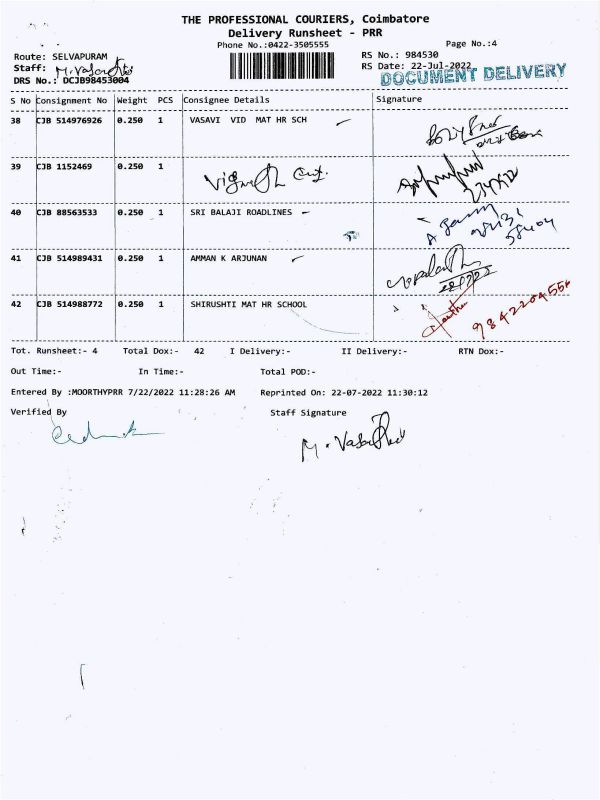 THE PROFESSIONAL COURIERS, Coimbatore
Delivery Runsheet - PRR
Phone No.:0422-3505555
Page No.:4
Route: SELVAPURAM
RS No.: 984530
Staff:
RS Date: 22-Jul-2022
DRS No.: DCJB98453004
DOCUMENT DELIVERY
S No Consignment No Weight PCS Consignee Details Signature
38 CJB 514976926 0.250 1 VASAVI VID MAT HR SCH
39 CJB 1152469 0.250 1
40 CJB 88563533 0.250 1 SRI BALAJI ROADLINES -
41 CJB 514989431 0.250 1 AMMAN K ARJUNAN
42 CJB 514988772 0.250 1 SHIRUSHTI MAT HR SCHOOL
9842204556
Tot. Runsheet:- 4 Total Dox:- 42 I Delivery:- II Delivery:- RTN Dox:-
Out Time:- In Time:- Total POD:-
Entered By :MOORTHYPRR 7/22/2022 11:28:26 AM Reprinted On: 22-07-2022 11:30:12
Verified By Staff Signature